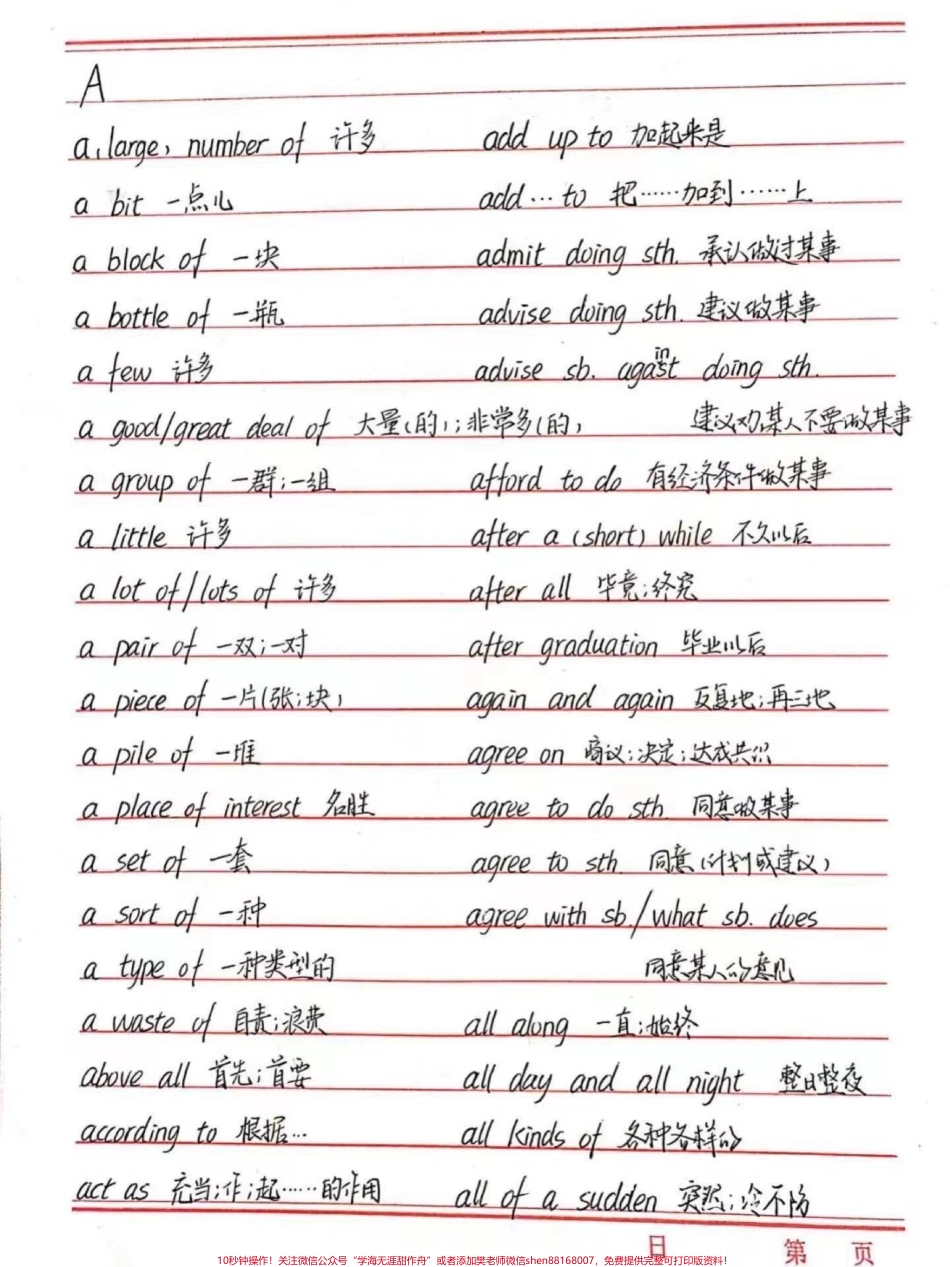 A
a (large) number of 许多
a bit 一点儿
a block of 一块
a bottle of 一瓶
a few 许多
a good/great deal of 大量(的);非常多(的)
a group of 一群;一组
a little 许多
a lot of/lots of 许多
a pair of 一双;一对
a piece of 一片(张;块)
a pile of 一堆
a place of interest 名胜
a set of 一套
a sort of 一种
a type of 一种类型的
a waste of 自责;浪费
above all 首先;首要
according to 根据…
act as 充当;作;起……的作用
add up to 加起来是
add…to 把……加到……上
admit doing sth. 承认做过某事
advise doing sth. 建议做某事
advise sb. against doing sth.
建议劝某人不要做某事
afford to do 有经济条件做某事
after a (short) while 不久以后
after all 毕竟;终究
after graduation 毕业以后
again and again 反复地;再三地
agree on 商议;决定;达成共识
agree to do sth. 同意做某事
agree to sth. 同意(计划或建议)
agree with sb./what sb. does
同意某人的意见
all along 一直;始终
all day and all night 整日整夜
all kinds of 各种各样的
all of a sudden 突然;冷不防
日 第 页
10秒钟操作！关注微信公众号“学海无涯甜作舟”或者添加樊老师微信shen88168007，免费提供完整可打印版资料！